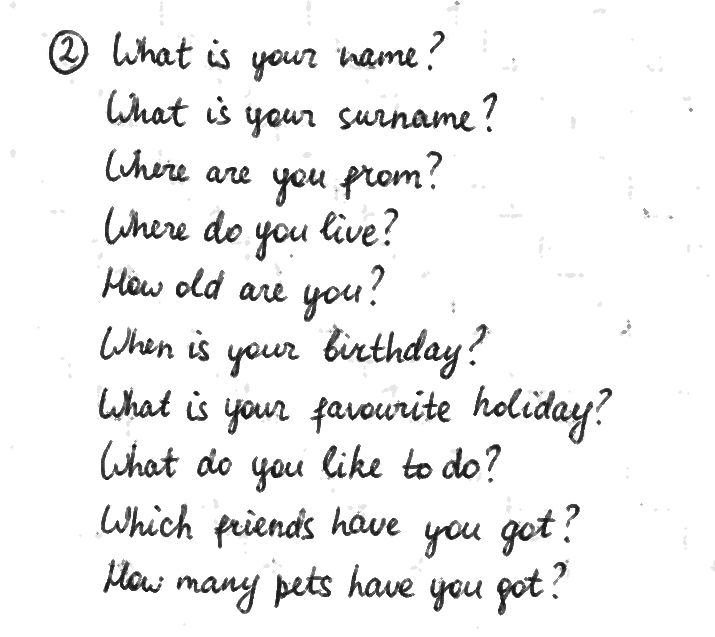 ② What is your name?
What is your surname?
Where are you from?
Where do you live?
How old are you?
When is your birthday?
What is your favourite holiday?
What do you like to do?
Which friends have you got?
How many pets have you got?